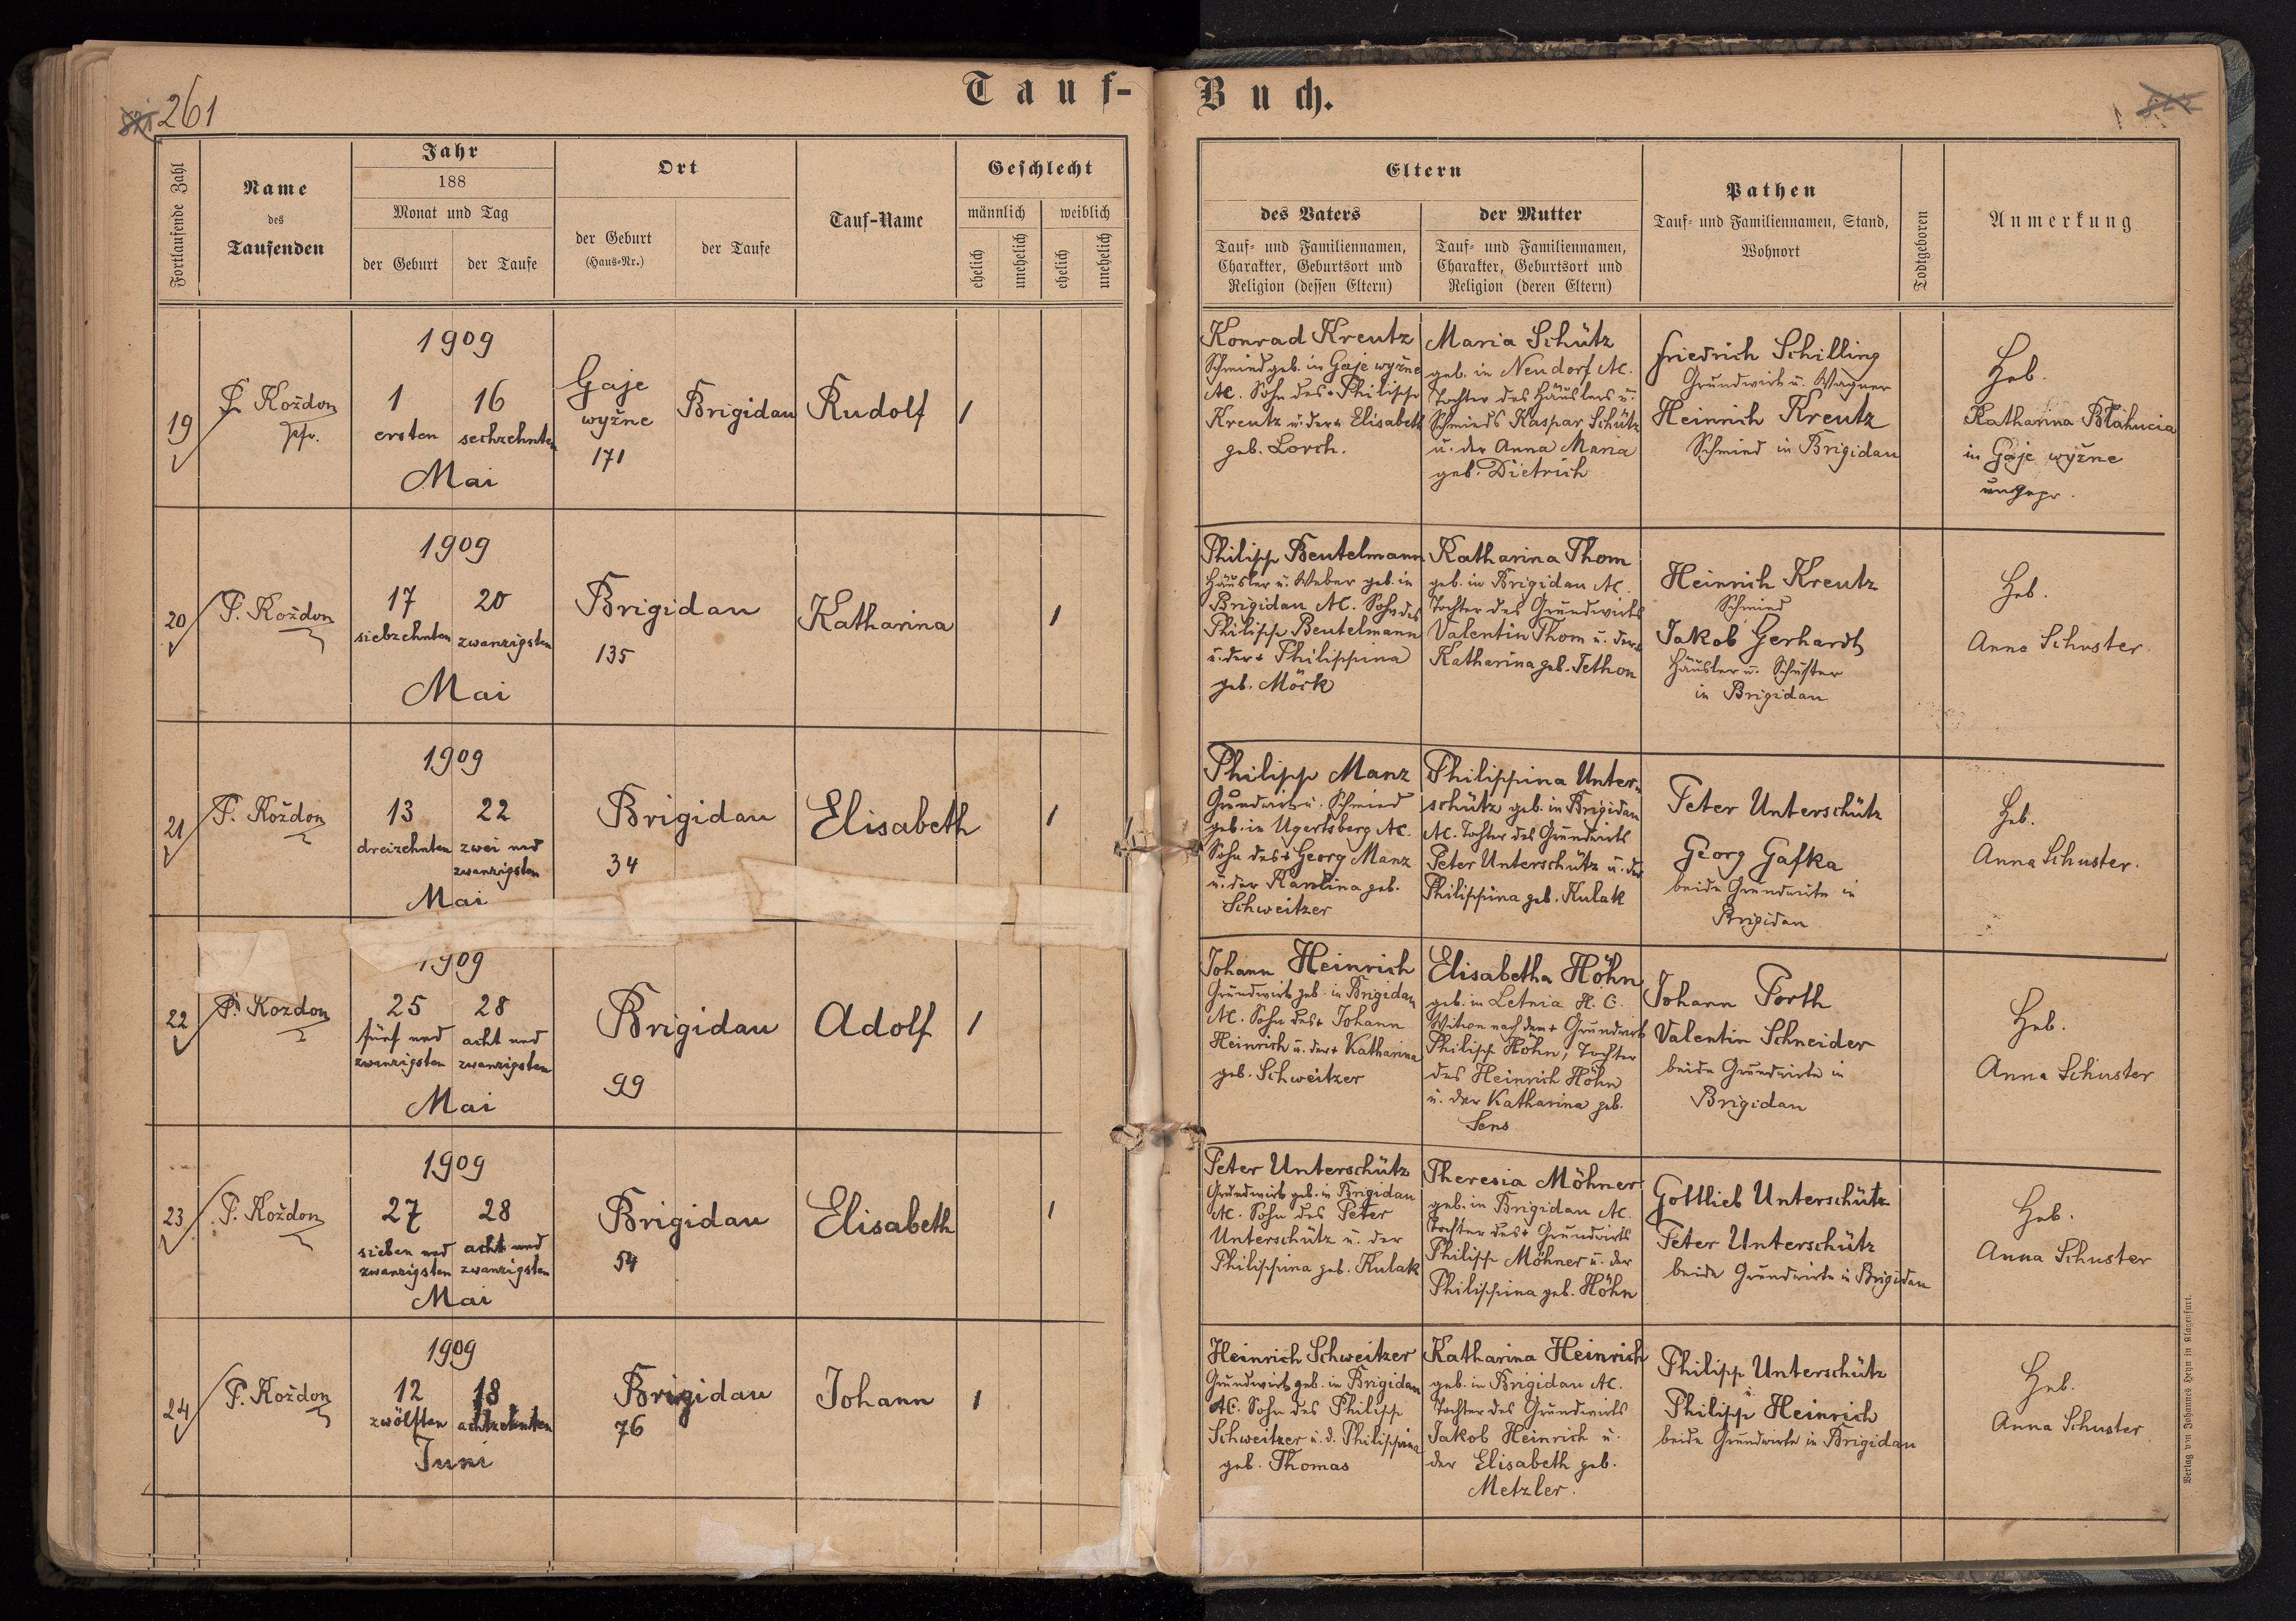 261
Tauf-
Buch.
Fortlaufende Zahl
Name
des
Taufenden
Jahr
188
Monat und Tag
der Geburt
der Taufe
Ort
der Geburt
(Haus=Nr.)
der Taufe
Tauf-Name
Geschlecht
männlich
weiblich
ehelich
unehelich
ehelich
unehelich
Eltern
des Vaters
Tauf= und Familiennamen,
Charakter, Geburtsort und
Religion (dessen Eltern)
der Mutter
Tauf= und Familiennamen,
Charakter, Geburtsort und
Religion (deren Eltern)
Pathen
Tauf= und Familiennamen, Stand,
Wohnort
Todtgeboren
Anmerkung
19
P. Koždon
pfr.
1909
1 16
ersten sechzehnten
Mai
Gaje
wyžne
171
Brigidau
Rudolf
1
Konrad Kreutz
Schmied geb. in Gaje wyžne
AC. Sohn des + Philipp
Kreutz u. der + Elisabeth
geb. Lorch.
Maria Schütz
geb. in Neudorf AC.
Tochter des Häuslers u.
Schmieds Kaspar Schütz
u. der Anna Maria
geb. Dietrich
Friedrich Schilling
Grundwirt u. Wagner
Heinrich Kreutz
Schmied in Brigidau
Heb.
Katharina Błahucia
in Gaje wyžne
ungepr.
20
P. Koždon
1909
17 20
siebzehnten zwanzigsten
Mai
Brigidau
135
Katharina
1
Philipp Beutelmann
Häusler u. Weber geb. in
Brigidau AC. Sohn des
Philipp Beutelmann
u. der + Philippina
geb. Möck
Katharina Thom
geb. in Brigidau AC.
Tochter des Grundwirts
Valentin Thom u. der +
Katharina geb. Tethon
Heinrich Kreutz
Schmied
Jakob Gerhardt
Häusler u. Schuster
in Brigidau
Heb.
Anna Schuster
21
P. Koždon
1909
13 22
dreizehnten zwei und
zwanzigsten
Mai
Brigidau
34
Elisabeth
1
Philipp Manz
Grundwirt u. Schmied
geb. in Ugartsberg AC.
Sohn des + Georg Manz
u. der Karolina geb.
Schweitzer
Philippina Unter-
schütz geb. in Brigidau
AC. Tochter des Grundwirts
Peter Unterschütz u. der
Philippina geb. Kulak
Peter Unterschütz
Georg Gafka
beide Grundwirte in
Brigidau
Heb.
Anna Schuster.
22
P. Koždon
1909
25 28
fünf und acht und
zwanzigsten zwanzigsten
Mai
Brigidau
99
Adolf
1
Johann Heinrich
Grundwirt geb. in Brigidau
AC. Sohn des + Johann
Heinrich u. der + Katharina
geb. Schweitzer
Elisabetha Höhn
geb. in Letnia H. C.
Witwe nach dem + Grundwirt
Philipp Höhn, Tochter
des Heinrich Höhn
u. der Katharina geb.
Sens
Johann Porth
Valentin Schneider
beide Grundwirte in
Brigidau
Heb.
Anna Schuster
23
P. Koždon
1909
27 28
sieben und acht und
zwanzigsten zwanzigsten
Mai
Brigidau
54
Elisabeth
1
Peter Unterschütz
Grundwirt geb. in Brigidau
AC. Sohn des Peter
Unterschütz u. der
Philippina geb. Kulak
Theresia Möhner
geb. in Brigidau AC.
Tochter des + Grundwirts
Philipp Möhner u. der
Philippina geb. Höhn
Gottlieb Unterschütz
Peter Unterschütz
beide Grundwirte in Brigidau
Heb.
Anna Schuster
24
P. Koždon
1909
12 18
zwölften achtzehnten
Juni
Brigidau
76
Johann
1
Heinrich Schweitzer
Grundwirt geb. in Brigidau
AC. Sohn des Philipp
Schweitzer u. d. Philippina
geb. Thomas
Katharina Heinrich
geb. in Brigidau AC.
Tochter des Grundwirts
Jakob Heinrich u.
der Elisabeth geb.
Metzler.
Philipp Unterschütz
Philipp Heinrich
beide Grundwirte in Brigidau
Heb.
Anna Schuster
Verlag von Johannes Heyn in Klagenfurt.